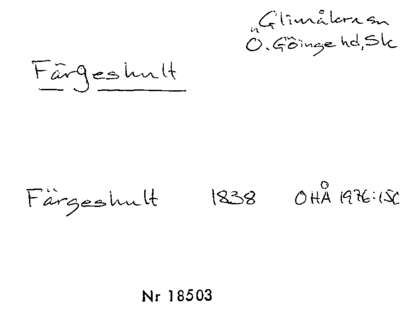 Glimåkra sn
Ö. Göinge hd, Sk
Färgeshult
Färgeshult 1838 OHÅ 1976:150
Nr 18503